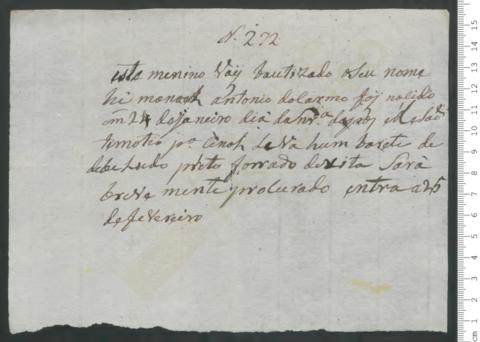 N. 272
este menino Vaij bautizado o seu nome
hé manoel antonio do carmo foij naSido
em 24 de Janeiro dia da nrª da paz e de São
timotio Leva hum barete de
de forrado de xita Sará
breve mente procurado entra a 25
de fevereiro